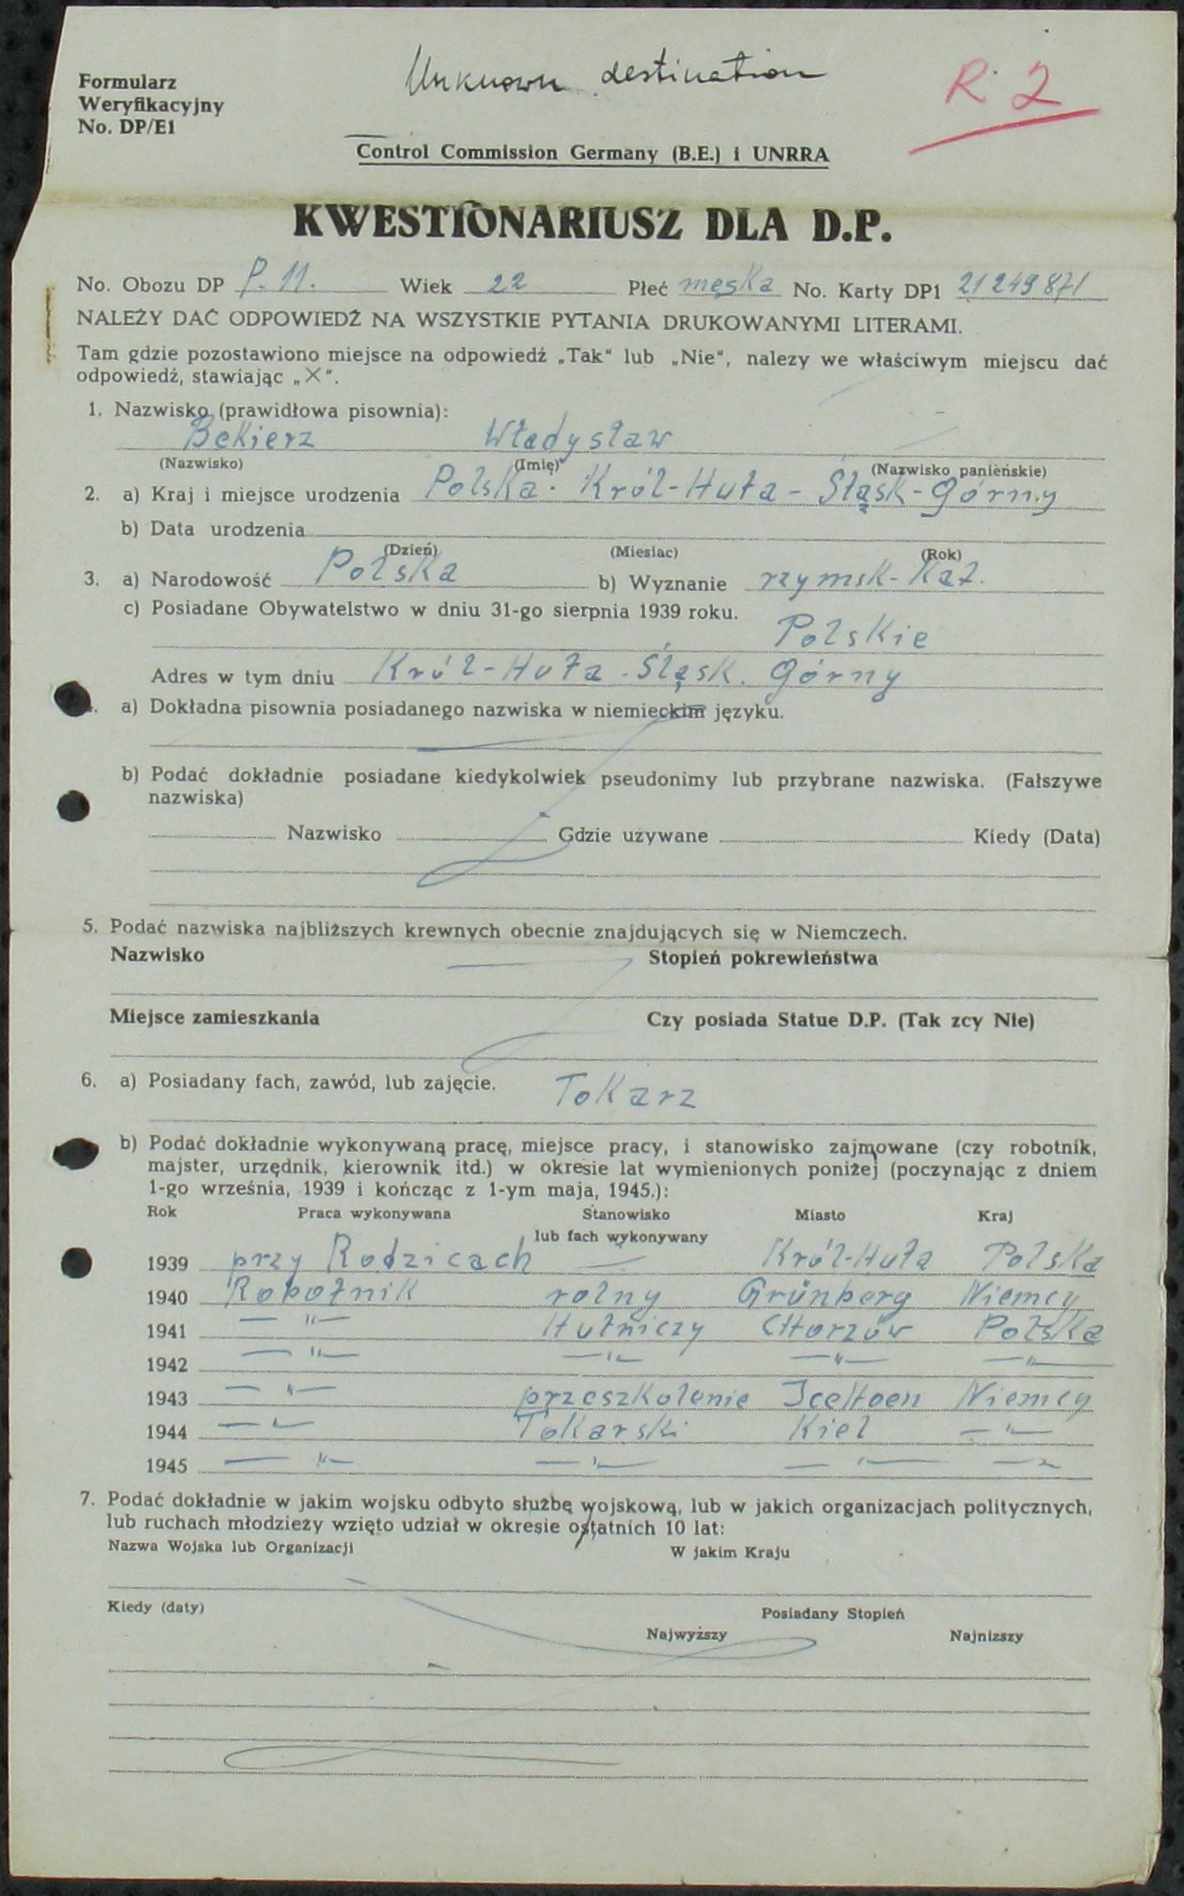 Unknown destination
R. 2
Formularz
Weryfikacyjny
No. DP/E1
Control Commission Germany (B.E.) i UNRRA
KWESTIONARIUSZ DLA D.P.
No. Obozu DP P. 11. Wiek 22 Płeć męska No. Karty DP1 21249871
NALEŻY DAĆ ODPOWIEDŹ NA WSZYSTKIE PYTANIA DRUKOWANYMI LITERAMI.
Tam gdzie pozostawiono miejsce na odpowiedź „Tak" lub „Nie", nalezy we właściwym miejscu dać
odpowiedź, stawiając „X".
1. Nazwisko (prawidłowa pisownia):
Bekierz Władysław
(Nazwisko) (Imię) (Nazwisko panieńskie)
2. a) Kraj i miejsce urodzenia Polska. Król-Huta - Śląsk-Górny
b) Data urodzenia
(Dzień) (Miesiac) (Rok)
3. a) Narodowość Polska b) Wyznanie rzymsk-Kat.
c) Posiadane Obywatelstwo w dniu 31-go sierpnia 1939 roku.
Polskie
Adres w tym dniu Król-Huta - Śląsk. Górny
a) Dokładna pisownia posiadanego nazwiska w niemieckim języku.
b) Podać dokładnie posiadane kiedykolwiek pseudonimy lub przybrane nazwiska. (Fałszywe
nazwiska)
Nazwisko Gdzie uzywane Kiedy (Data)
5. Podać nazwiska najbliższych krewnych obecnie znajdujących się w Niemczech.
Nazwisko Stopień pokrewieństwa
Miejsce zamieszkania Czy posiada Statue D.P. (Tak zcy Nie)
6. a) Posiadany fach, zawód, lub zajęcie. Tokarz
b) Podać dokładnie wykonywaną pracę, miejsce pracy, i stanowisko zajmowane (czy robotnik,
majster, urzędnik, kierownik itd.) w okresie lat wymienionych poniżej (poczynając z dniem
1-go września, 1939 i kończąc z 1-ym maja, 1945.):
Rok Praca wykonywana Stanowisko Miasto Kraj
lub fach wykonywany
1939 przy Rodzicach — Król-Huta Polska
1940 Robotnik rolny Grünberg Niemcy
1941 — " — Hutniczy CHorzów Polska
1942 — " — — " — — " — — " —
1943 — " — przeszkolenie IceHoen Niemcy
1944 — " — Tokarski Kiel — " —
1945 — " — — " — — " — — " —
7. Podać dokładnie w jakim wojsku odbyto służbę wojskową, lub w jakich organizacjach politycznych,
lub ruchach młodzieży wzięto udział w okresie ostatnich 10 lat:
Nazwa Wojska lub Organizacji W jakim Kraju
Kiedy (daty) Posiadany Stopień
Najwyższy Najnizszy